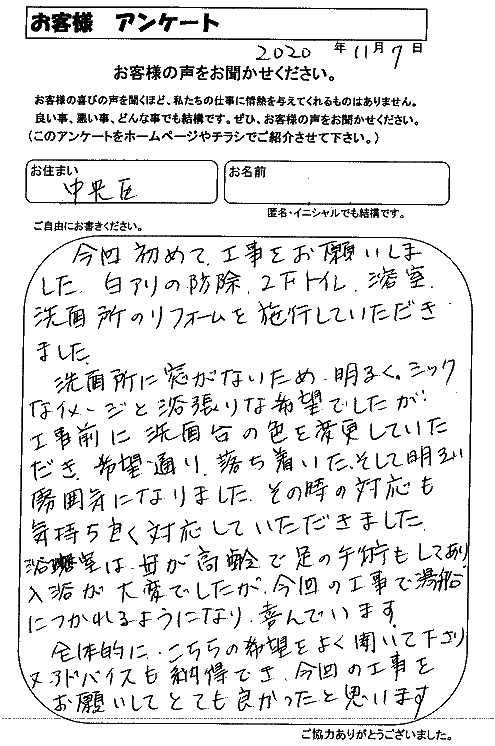 お客様 アンケート
2020 年 11月 7日
お客様の声をお聞かせください。
お客様の喜びの声を聞くほど、私たちの仕事に情熱を与えてくれるものはありません。
良い事、悪い事、どんな事でも結構です。ぜひ、お客様の声をお聞かせください。
(このアンケートをホームページやチラシでご紹介させて下さい。)
お住まい
中央区
お名前
匿名・イニシャルでも結構です。
ご自由にお書きください。
今回初めて、工事をお願いしま
した。白アリの防除、2Fトイレ、浴室、
洗面所のリフォームを施行していただき
ました。
洗面所に窓がないため、明るく。シック
なイメージと欲張りな希望でしたが、
工事前に洗面台の色を変更していた
だき、希望通り、落ち着いた、そして明るい
雰囲気になりました。その時の対応も
気持ち良く対応していただきました。
浴室は、母が高齢で足の手術もしており
入浴が大変でしたが、今回の工事で湯船
につかれるようになり、喜んでいます。
全体的に、こちらの希望をよく聞いて下さり
又アドバイスも納得でき、今回の工事を
お願いしてとても良かったと思います
ご協力ありがとうございました。